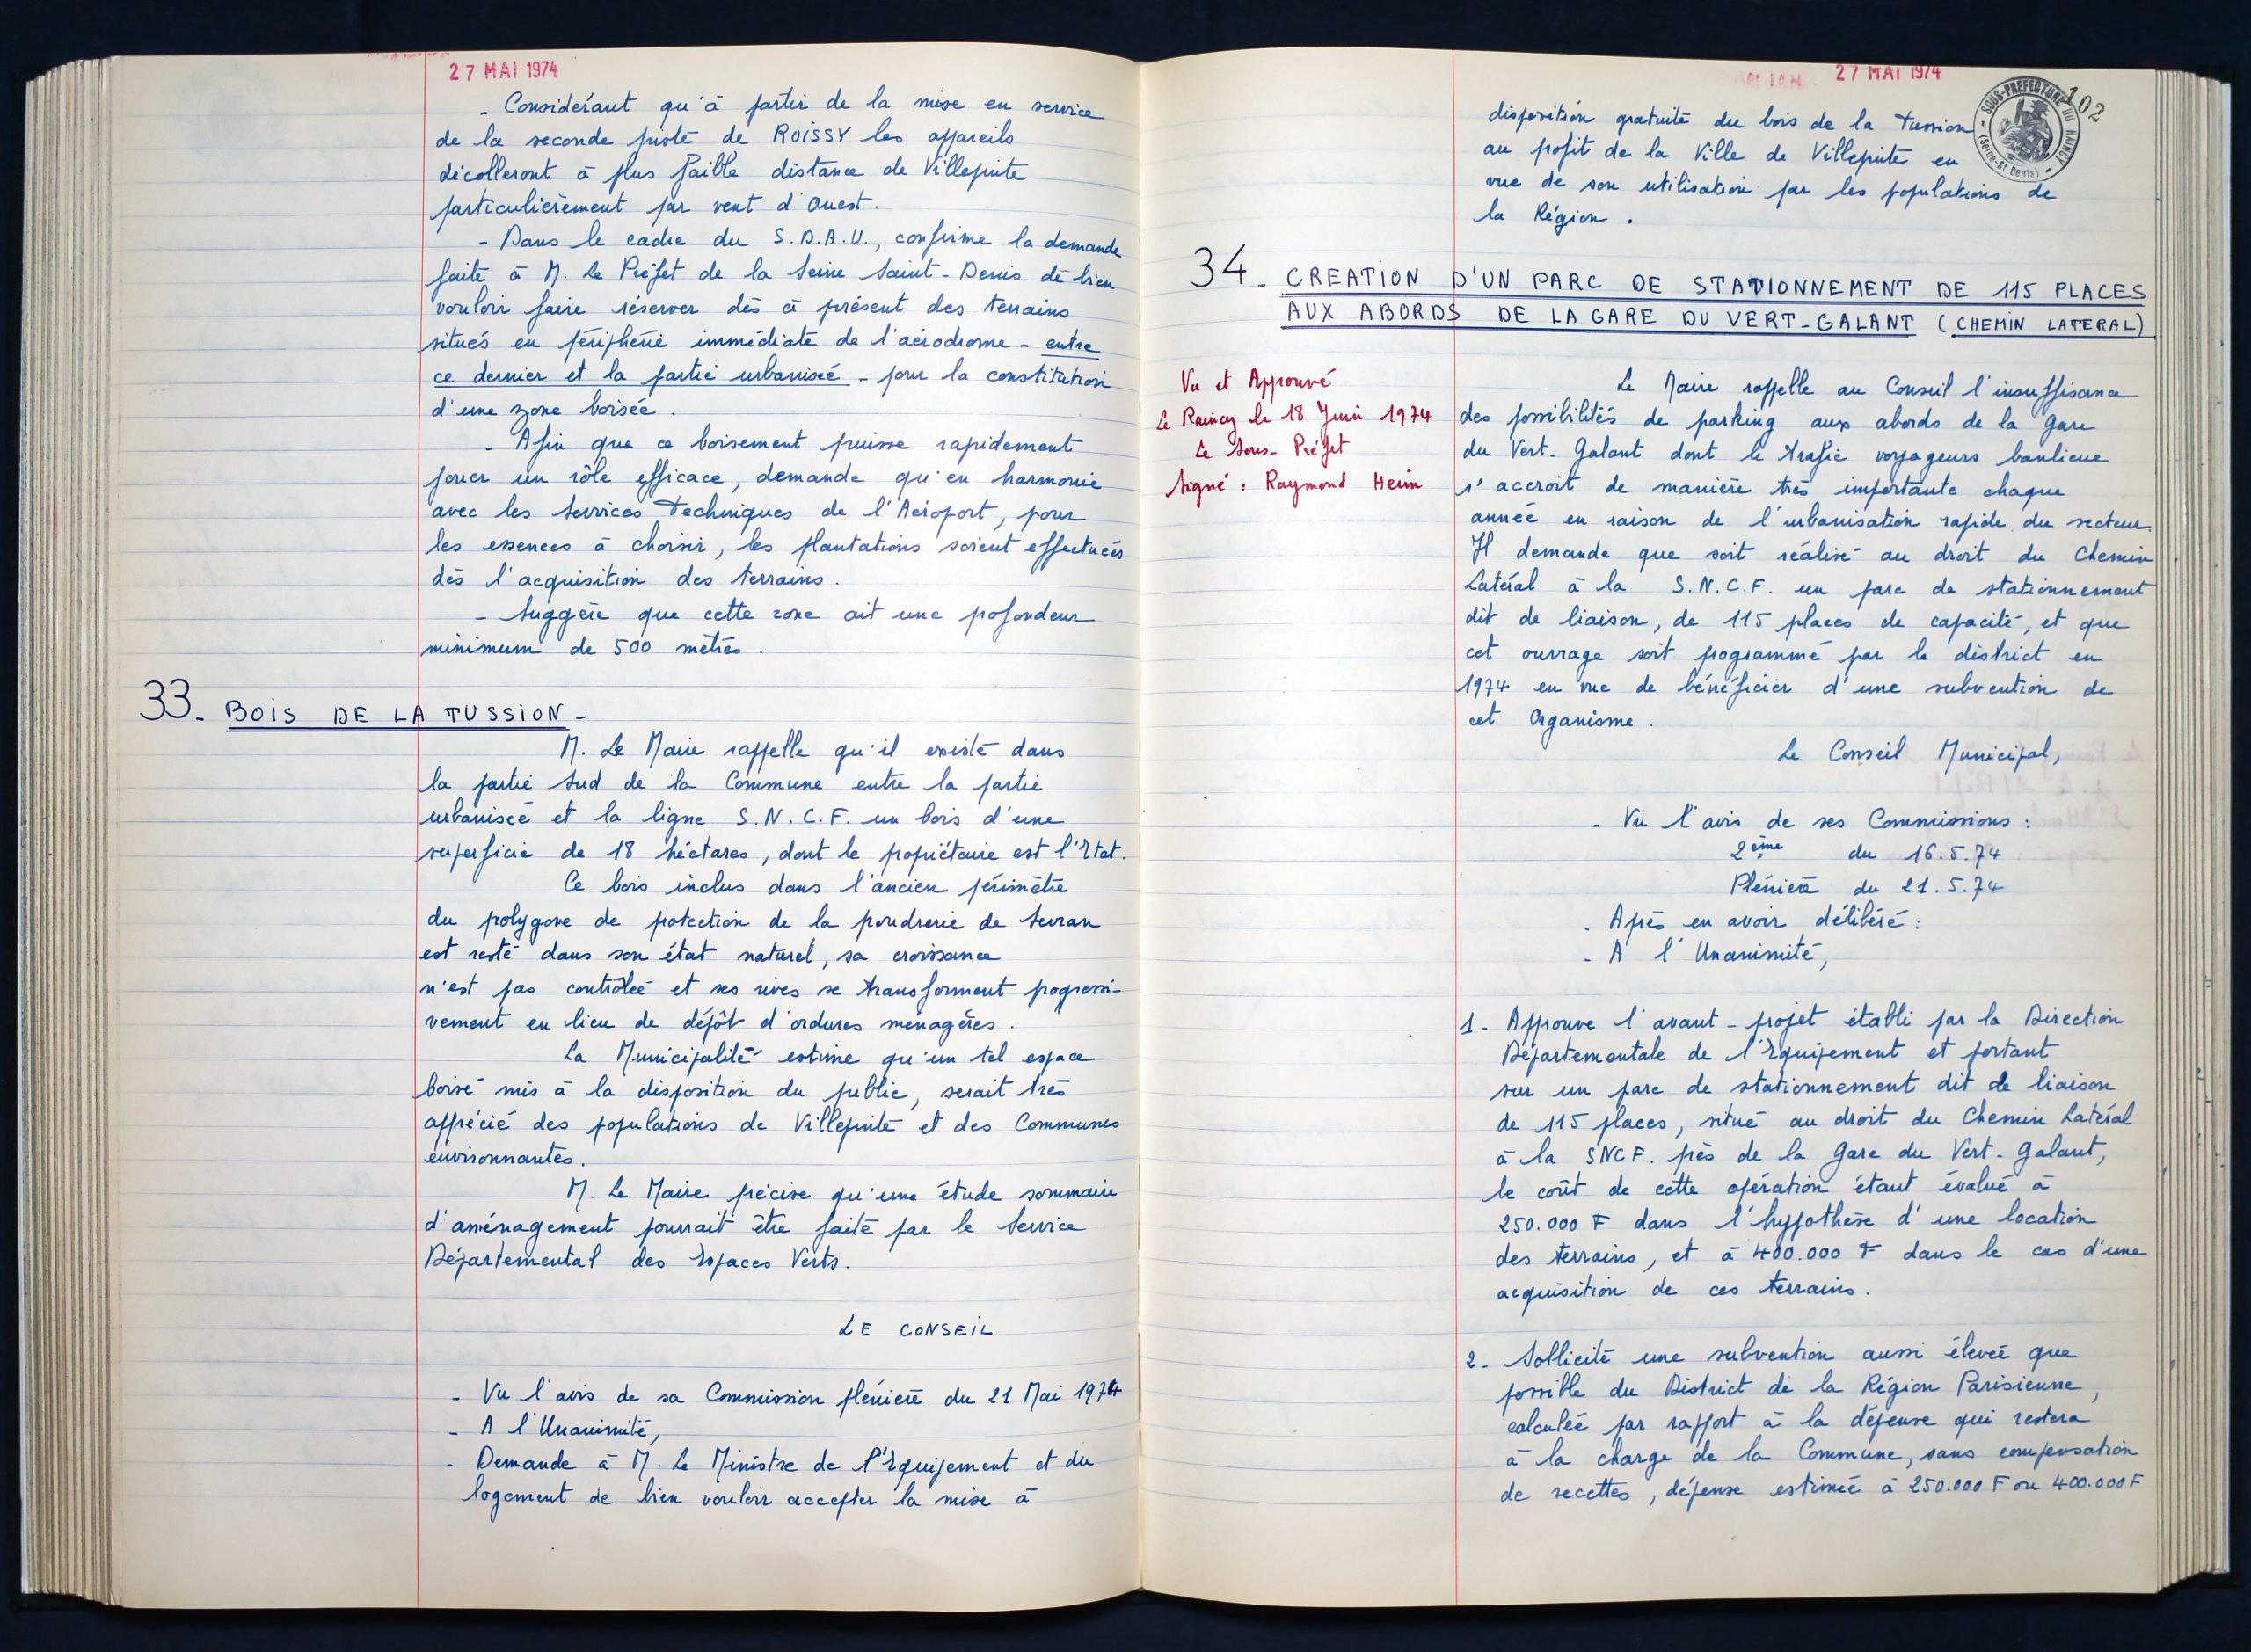 27 MAI 1974
- Considérant qu'à partir de la mise en service
de la seconde piste de ROISSY les appareils
décolleront à plus faible distance de Villepinte
particulièrement par vent d'Ouest.
- Dans le cadre du S.D.A.U., confirme la demande
faite à M. Le Préfet de la Seine Saint-Denis de bien
vouloir faire réserver dès à présent des terrains
situés en périphérie immédiate de l'aérodrome - entre
ce dernier et la partie urbanisée - pour la constitution
d'une zone boisée.
- Afin que ce boisement puisse rapidement
jouer un rôle efficace, demande qu'en harmonie
avec les Services Techniques de l'Aéroport, pour
les essences à choisir, les plantations soient effectuées
dès l'acquisition des terrains.
- Suggère que cette zone ait une profondeur
minimum de 500 mètres.
33. BOIS DE LA TUSSION -
M. Le Maire rappelle qu'il existe dans
la partie Sud de la Commune entre la partie
urbanisée et la ligne S.N.C.F. un bois d'une
superficie de 18 héctares, dont le propiétaire est l'Etat.
Ce bois inclus dans l'ancien périmètre
du polygone de protection de la poudrerie de Sevran
est resté dans son état naturel, sa croissance
n'est pas contrôlée et ses rives se transforment progressi-
vement en lieu de dépôt d'ordures ménagères.
La Municipalité estime qu'un tel espace
boisé mis à la disposition du public, serait très
apprécié des populations de Villepinte et des Communes
environnantes.
M. Le Maire précise qu'une étude sommaire
d'aménagement pourrait être faite par le Service
Départemental des Espaces Verts.
LE CONSEIL
- Vu l'avis de sa Commission plénière du 21 Mai 1974
- A l'Unanimité,
- Demande à M. Le Ministre de l'Equipement et du
logement de bien vouloir accepter la mise à
27 MAI 1974
102
SOUS-PREFECTURE DU RAINCY
(Seine-St-Denis)
disposition gratuite du bois de la Tussion
au profit de la Ville de Villepinte en
vue de son utilisation par les populations de
la Région.
34. CREATION D'UN PARC DE STATIONNEMENT DE 115 PLACES
AUX ABORDS DE LA GARE DU VERT-GALANT (CHEMIN LATERAL)
Vu et Approuvé
Le Raincy le 18 Juin 1974
Le Sous-Préfet
Signé : Raymond Heim
Le Maire rappelle au Conseil l'insuffisance
des possibilités de parking aux abords de la Gare
du Vert-Galant dont le trafic voyageurs banlieue
s'accroit de manière très importante chaque
année en raison de l'urbanisation rapide du secteur.
Il demande que soit réalisé au droit du Chemin
Latéral à la S.N.C.F. un parc de stationnement
dit de liaison, de 115 places de capacité, et que
cet ouvrage soit programmé par le district en
1974 en vue de bénéficier d'une subvention de
cet Organisme.
Le Conseil Municipal,
- Vu l'avis de ses Commissions :
2ème du 16.5.74
Plénière du 21.5.74
- Après en avoir délibéré :
- A l'Unanimité,
1- Approuve l'avant-projet établi par la Direction
Départementale de l'Equipement et portant
sur un parc de stationnement dit de liaison
de 115 places, situé au droit du Chemin Latéral
à la SNCF. près de la Gare du Vert-Galant,
le coût de cette opération étant évalué à
250.000 F dans l'hypothèse d'une location
des terrains, et à 400.000 F dans le cas d'une
acquisition de ces terrains.
2- Sollicite une subvention aussi élevée que
possible du District de la Région Parisienne,
calculée par rapport à la dépense qui restera
à la charge de la Commune, sans compensation
de recettes, dépense estimée à 250.000 F ou 400.000 F